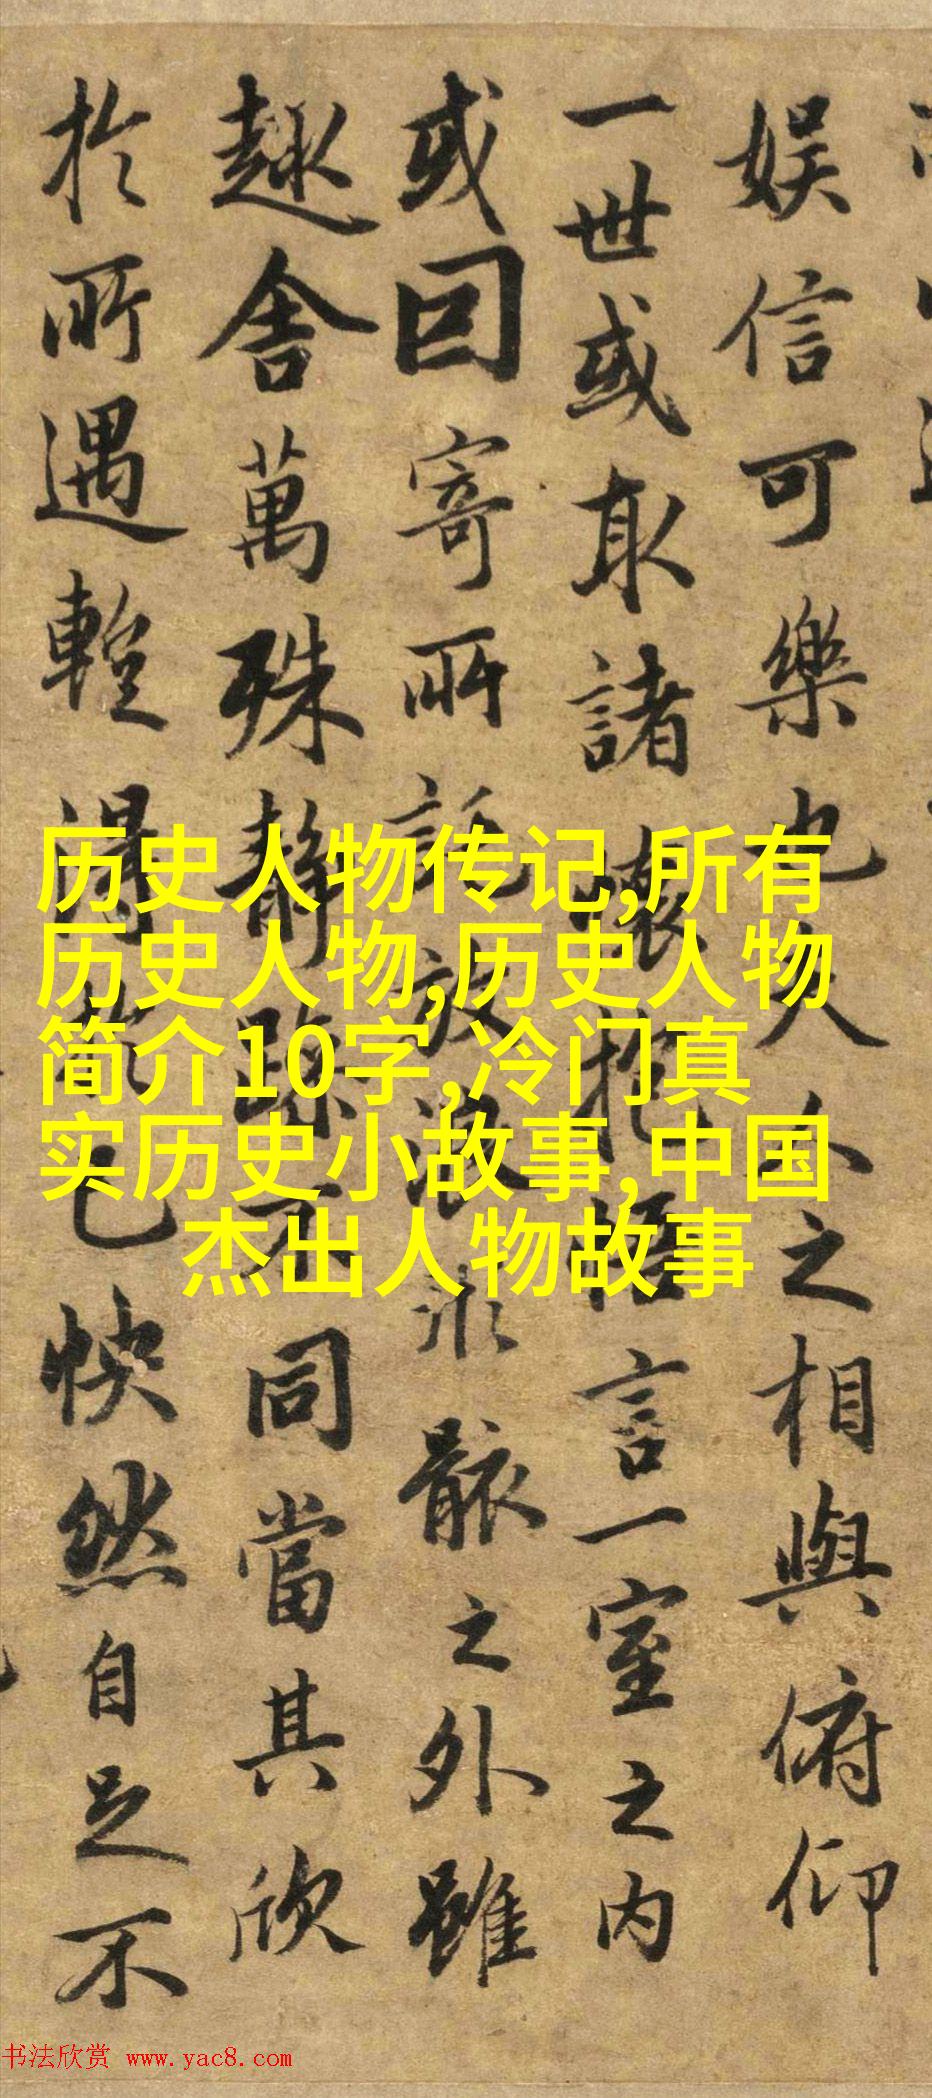 娯信可樂也夫人之相與俯仰
一世或取諸懷抱悟言一室之内
或囙寄所託放浪形骸之外雖
趣舍萬殊静躁不同當其欣
於所遇蹔得於己快然自足不
历史人物传记,所有
历史人物,历史人物
简介10字,冷门真
实历史小故事,中国
杰出人物故事
书法欣赏 www.yac8.com